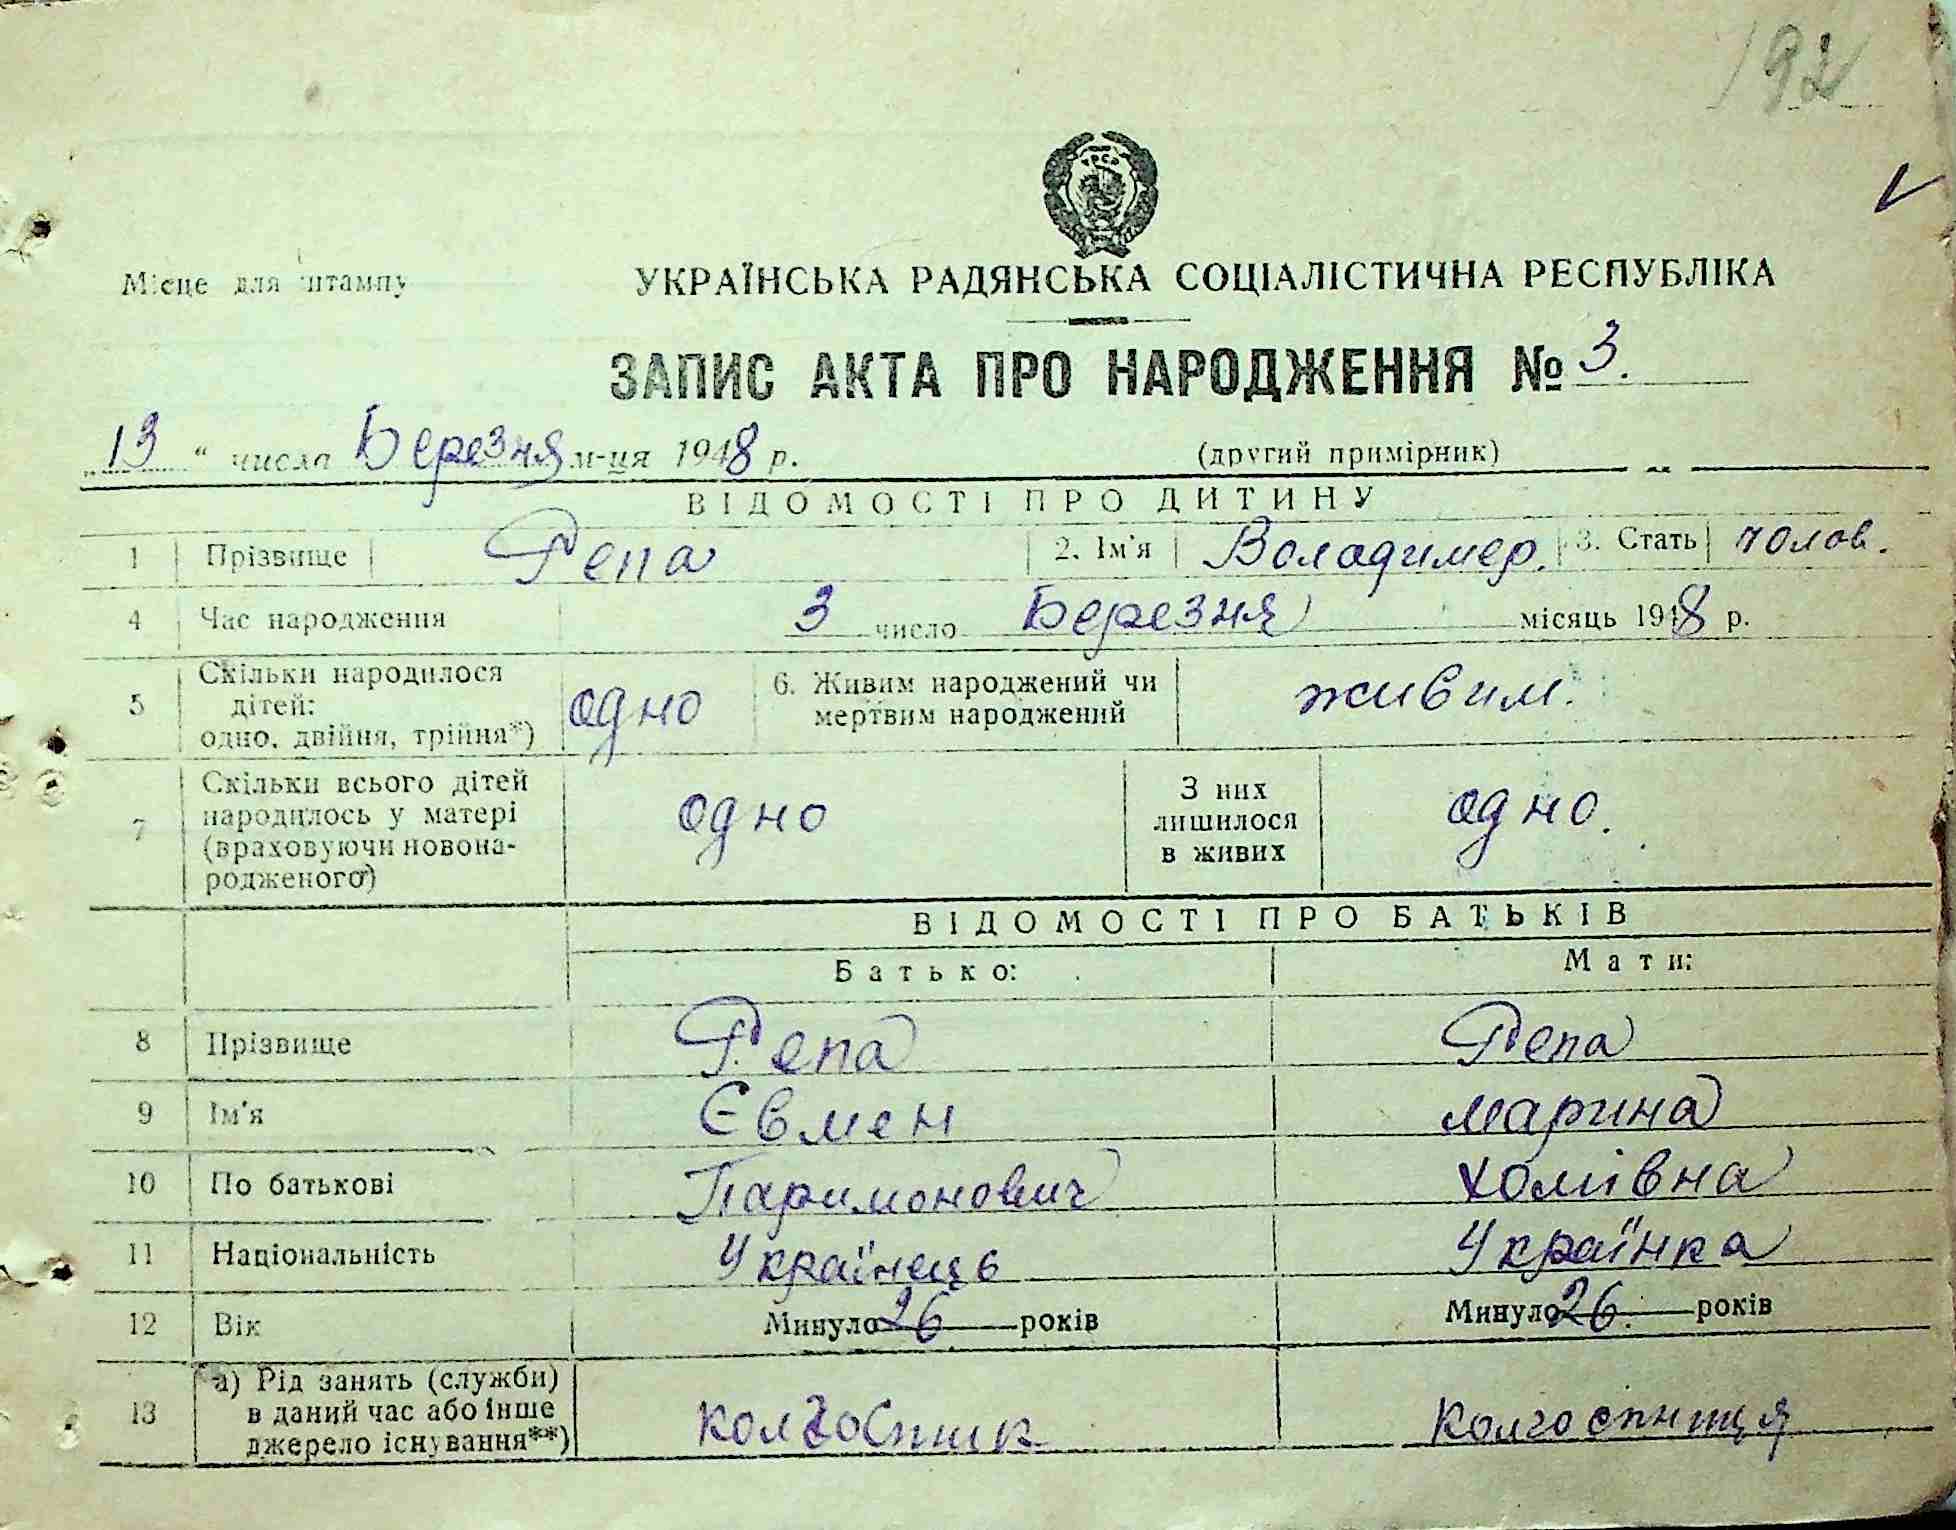 192
УРСР
Місце для штампу
УКРАЇНСЬКА РАДЯНСЬКА СОЦІАЛІСТИЧНА РЕСПУБЛІКА
ЗАПИС АКТА ПРО НАРОДЖЕННЯ № 3.
„13“ числа Березня м-ця 1948 р. (другий примірник)
ВІДОМОСТІ ПРО ДИТИНУ
1 Прізвище Репа 2. Ім'я Володимер. 3. Стать чолов.
4 Час народження 3 число Березня місяць 1948 р.
5 Скільки народилося дітей: одно, двійня, трійня*) одно 6. Живим народжений чи мертвим народжений живим.
7 Скільки всього дітей народилось у матері (враховуючи новонародженого) одно З них лишилося в живих одно.
ВІДОМОСТІ ПРО БАТЬКІВ
Батько: Мати:
8 Прізвище Репа Репа
9 Ім'я Євмен марина
10 По батькові Паримонович Хомівна
11 Національність Українець Українка
12 Вік Минуло 26 років Минуло 26. років
13 а) Рід занять (служби) в даний час або інше джерело існування**) колгоспник колгоспниця